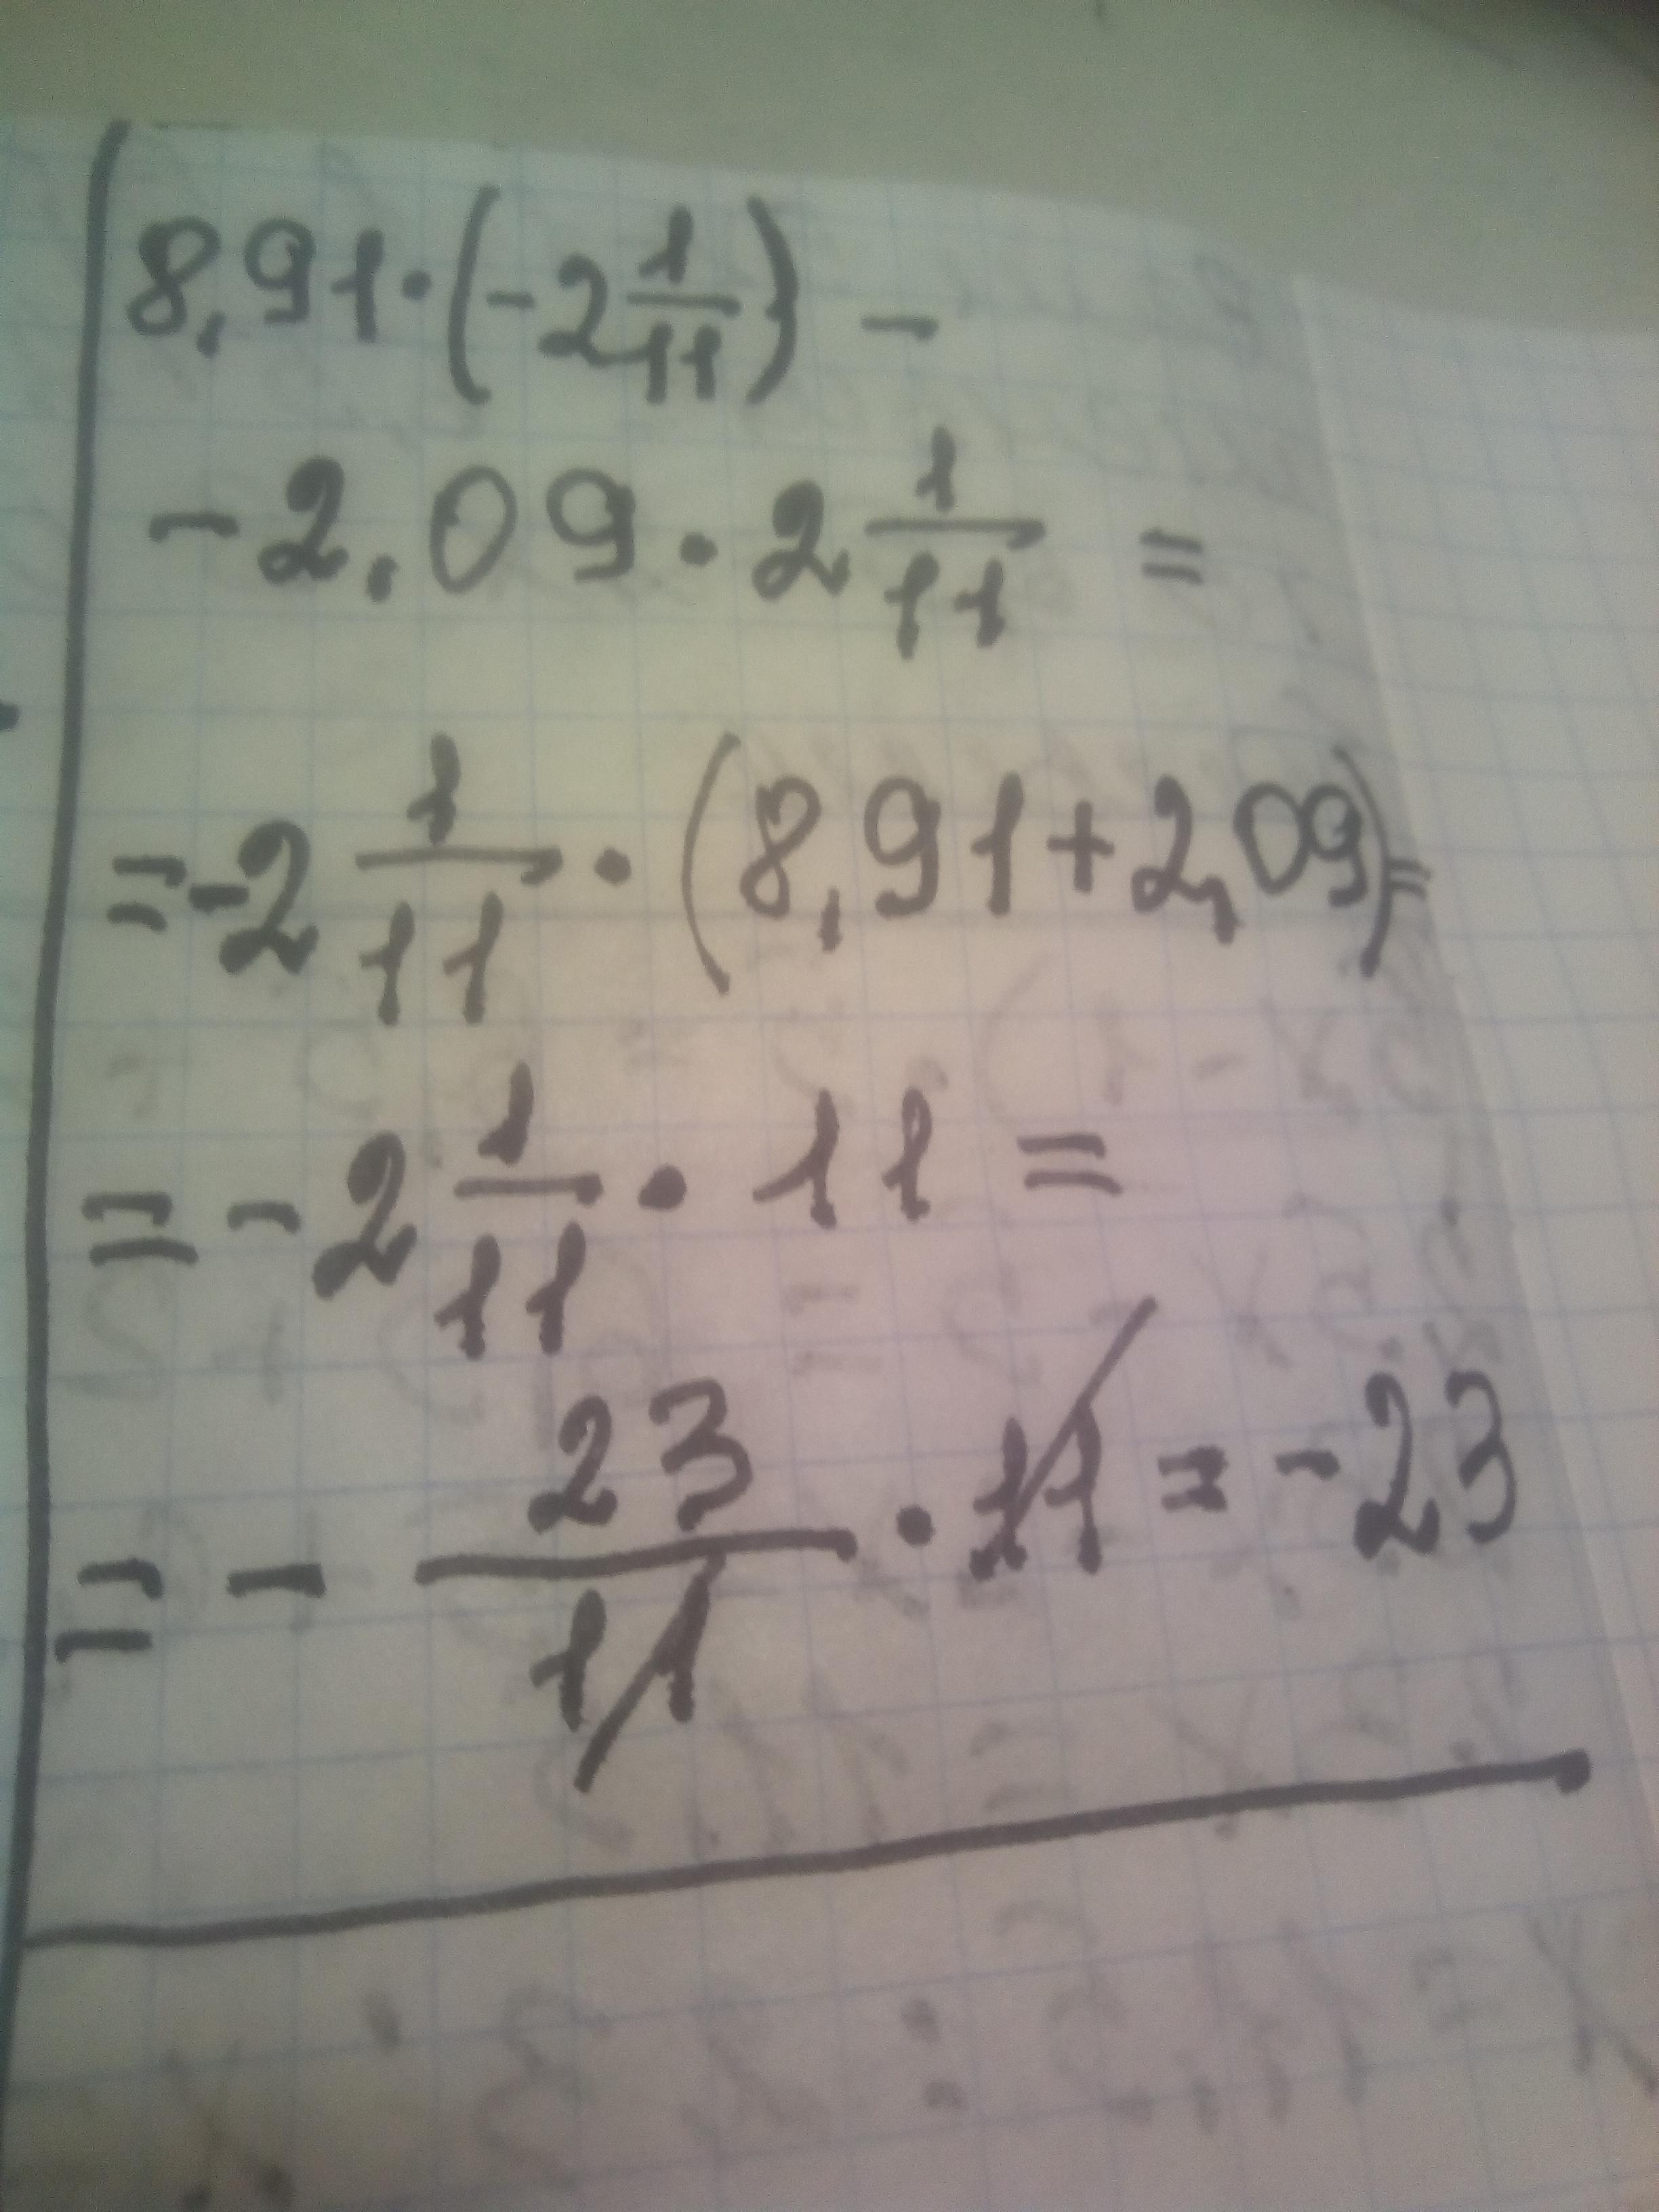 8,91·(-2 1/11) -
-2,09·2 1/11 =
=-2 1/11·(8,91+2,09)=
=-2 1/11·11=
=-23/11·11=-23